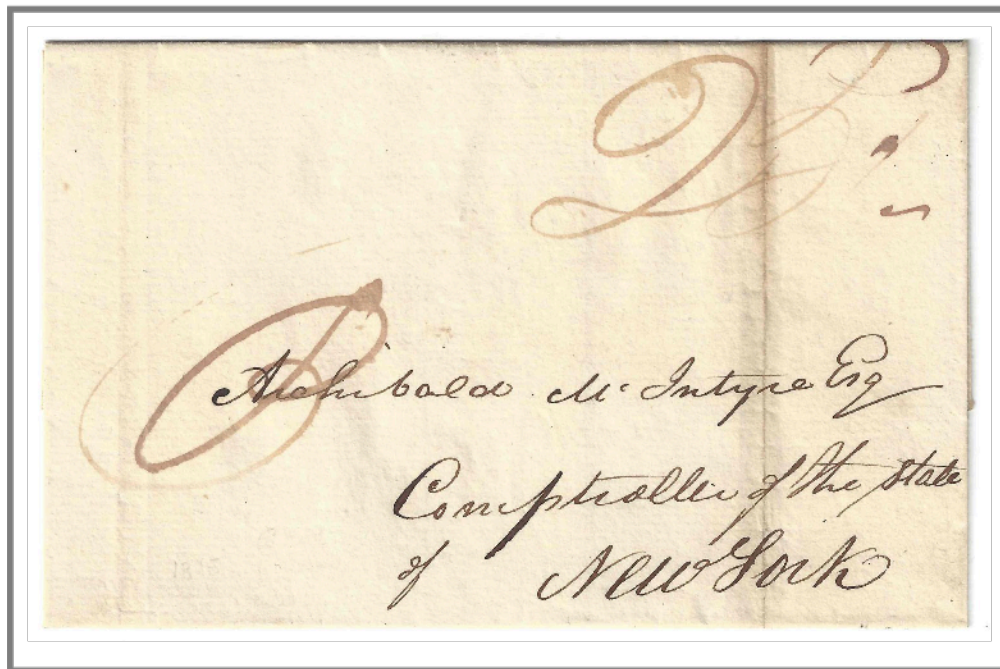 Archibald McIntyre Esq
Comptroller of the State
of New York